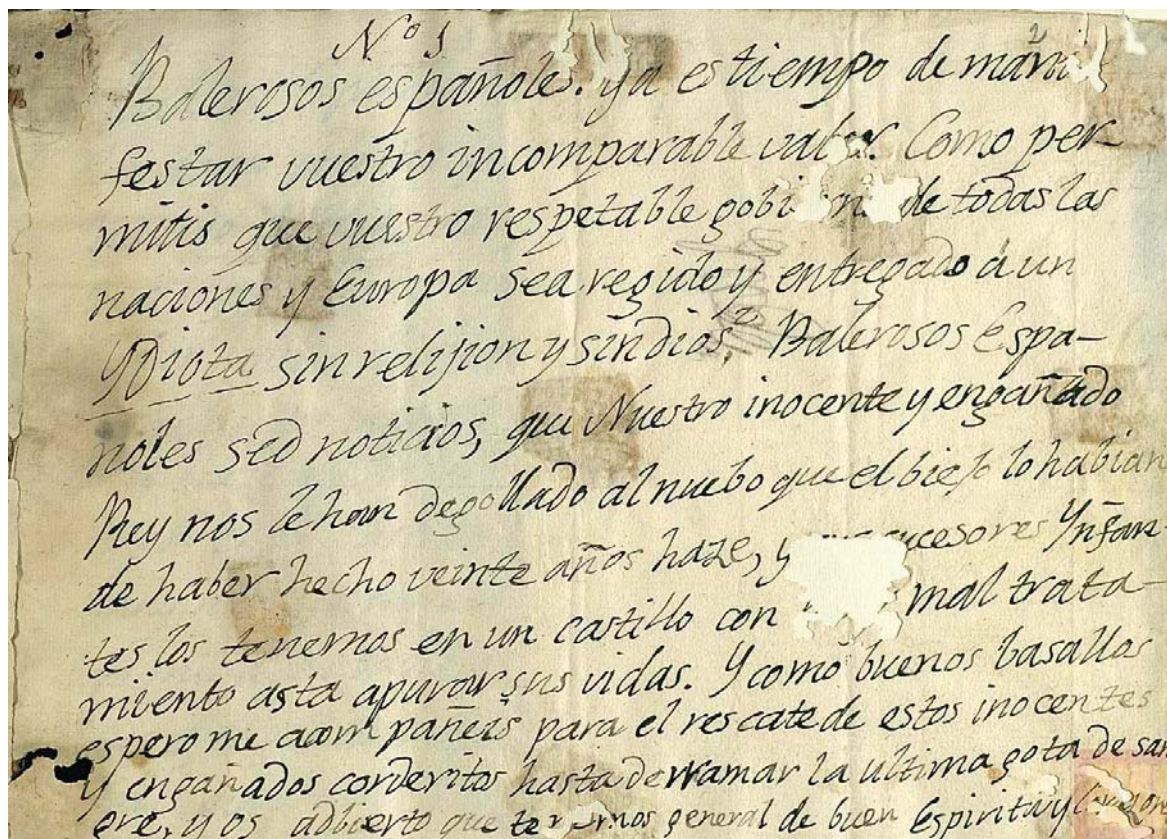 Nº 1
2
Balerosos españoles. ya es tiempo de mani
festar vuestro incomparable valor. Como per-
mitis que vuestro respetable gobi de todas las
naciones y Europa sea regido y entregado á un
Ydiota sin relijion y sin dios? Balerosos Espa-
noles sed noticios, que Nuestro inocente y engañado
Rey nos le han degollado al nuebo que el biejo lo habian
de haber hecho veinte años haze, y sucesores Ynfan-
tes los tenemos en un castillo con mal trata-
miento asta apurar sus vidas. Y como buenos basallos
espero me acompañeis para el rescate de estos inocentes
y engañados corderitos hasta derramar la ultima gota de san
gre, y os adbierto que general de buen Espiritu y